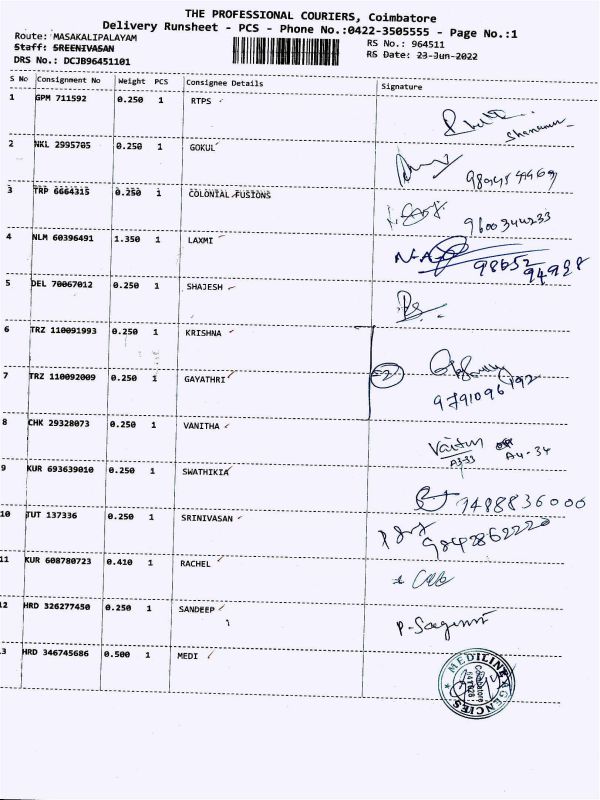 THE PROFESSIONAL COURIERS, Coimbatore
Delivery Runsheet - PCS - Phone No.:0422-3505555 - Page No.:1
Route: MASAKALIPALAYAM
RS No.: 964511
Staff: SREENIVASAN
RS Date: 23-Jun-2022
DRS No.: DCJB96451101
S No Consignment No Weight PCS Consignee Details Signature
1 GPM 711592 0.250 1 RTPS
2 NKL 2995705 0.250 1 GOKUL
3 TRP 6664315 0.250 1 COLONIAL FUSIONS
9600344233
4 NLM 60396491 1.350 1 LAXMI
98652 94928
5 DEL 70067012 0.250 1 SHAJESH
6 TRZ 110091993 0.250 1 KRISHNA
7 TRZ 110092009 0.250 1 GAYATHRI
9791096192
8 CHK 29328073 0.250 1 VANITHA
A4-34
9 KUR 693639010 0.250 1 SWATHIKIA
7488836000
10 TUT 137336 0.250 1 SRINIVASAN
9842862220
11 KUR 608780723 0.410 1 RACHEL
12 HRD 326277450 0.250 1 SANDEEP
13 HRD 346745686 0.500 1 MEDI
MEDILINE AGENCIES
Coimbatore